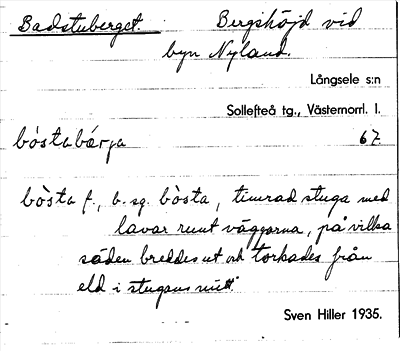 Badstuberget. Bergshöjd vid
byn Nyland.
Långsele s:n
Sollefteå tg., Västernorrl. l.
bóstabárja 67.
bòsta f., b. sg. bòsta, timrad stuga med
lavar runt väggarna, på vilka
säden breddes ut och torkades från
eld i stugans mitt.
Sven Hiller 1935.